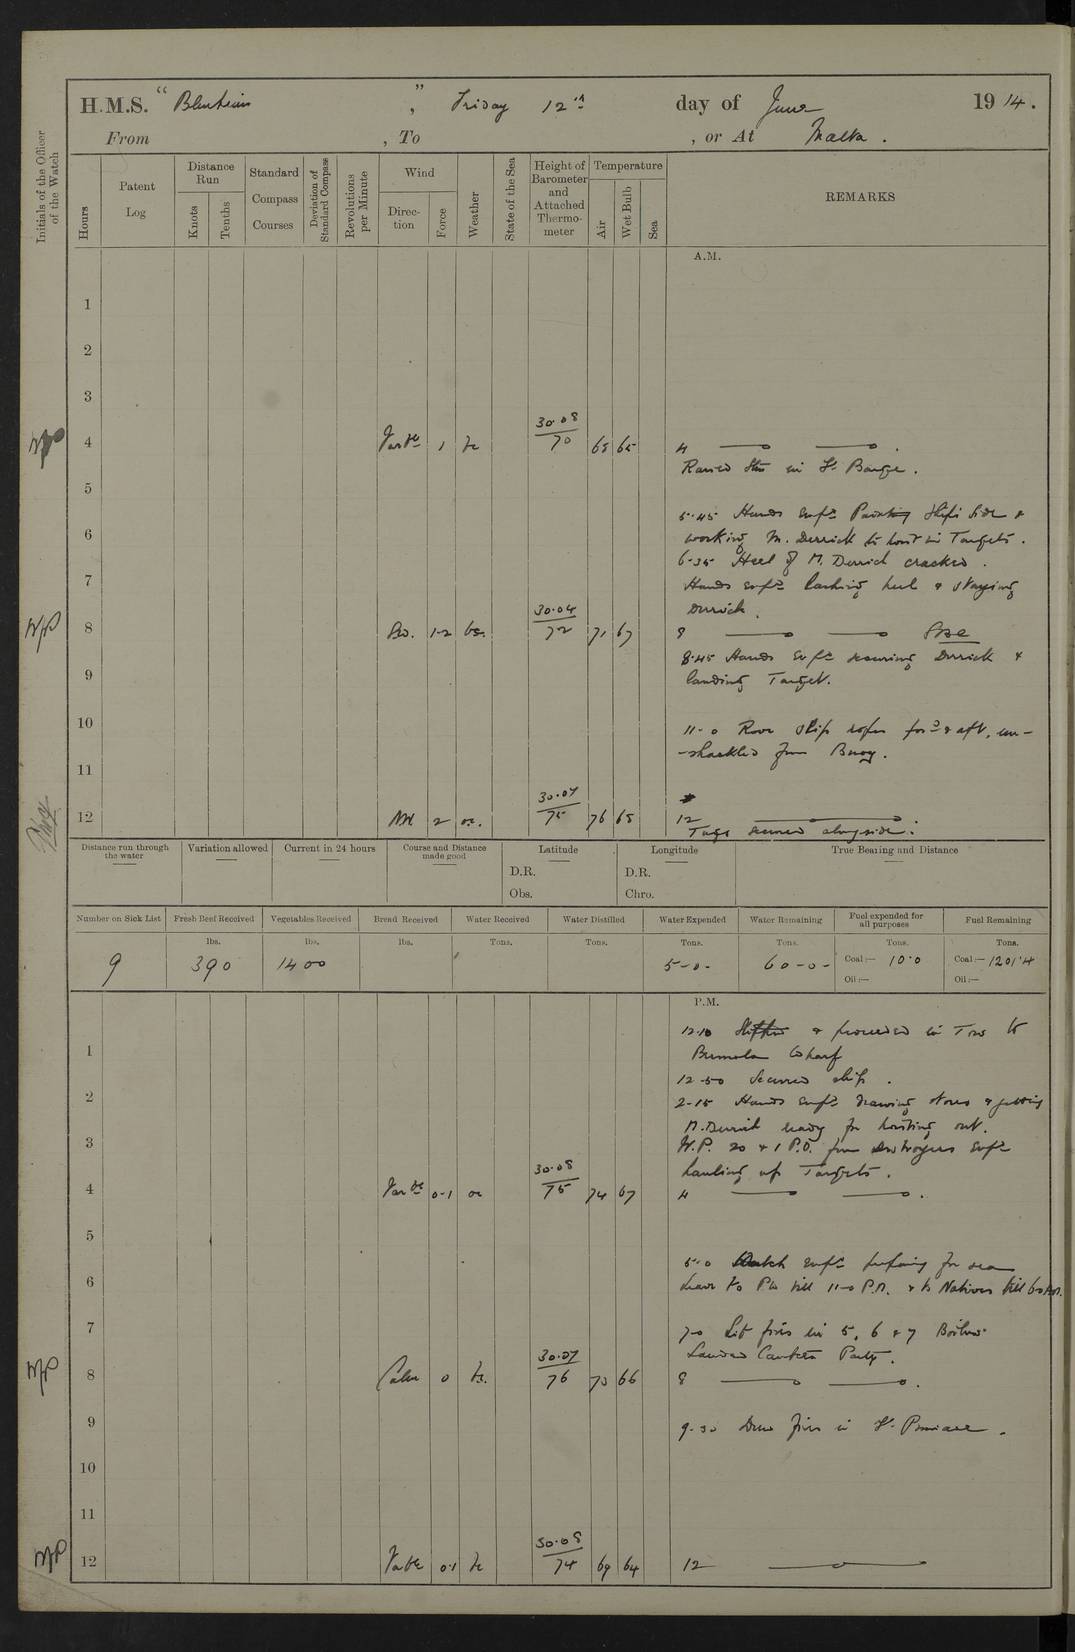 H.M.S. " Blenheim ", Friday 12th day of June 1914.
From , To , or At Malta.
Initials of the Officer of the Watch
Hours
Patent Log
Distance Run
Knots
Tenths
Standard Compass Courses
Deviation of Standard Compass
Revolutions per Minute
Wind
Direction
Force
Weather
State of the Sea
Height of Barometer and Attached Thermometer
Temperature
Air
Wet Bulb
Sea
REMARKS
A.M.
1
2
3
4 Varble 1 bc 30.08 70 68 65 4
Raised Stm in St. Barge.
5
5.45 Hands empd Painting Ship's Side &
6 working M. Derrick to hoist in Targets.
6-35 Heel of M. Derrick cracked.
7 Hands empd lashing heel & staying
Derrick.
8 Do. 1-2 bc. 30.04 72 71 67 8
8.45 Hands empd securing Derrick &
9 landing Target.
10
11-0 Rove slip ropes ford & aft, un-
-shackled from Buoy.
11
12 NE 2 oc. 30.07 75 76 65 12
Tugs secured alongside.
Distance run through the water
Variation allowed
Current in 24 hours
Course and Distance made good
Latitude
D.R.
Obs.
Longitude
D.R.
Chro.
True Bearing and Distance
Number on Sick List
Fresh Beef Received
Vegetables Received
Bread Received
Water Received
Water Distilled
Water Expended
Water Remaining
Fuel expended for all purposes
Fuel Remaining
lbs. lbs. lbs. Tons. Tons. Tons. Tons. Tons. Tons.
9 390 1400 5-0- 60-0- Coal:— 10.0 Coal:— 1201.4
Oil:— Oil:—
P.M.
12.10 Slipped & proceeded in Tow to
1 Bumola Wharf
12-50 Secured ship.
2 2-15 Hands empd drawing stores & getting
M. Derrick ready for hoisting out.
3 W.P. 20 & 1 P.O. from Destroyers empd
hauling up Targets.
4 Varble 0-1 oc 30.08 75 74 67 4
5
5.0 Watch empd preparing for sea
6 Leave to PW till 11-0 P.M. & to Natives till 6-0 AM.
7 7-0 Lit fires in 5, 6 & 7 Boilers.
Landed Canteen Party.
8 Calm 0 bc. 30.07 76 70 66 8
9 9-30 Drew fires in St. Pinnace.
10
11
12 Varble 0.1 bc 30.08 74 69 64 12